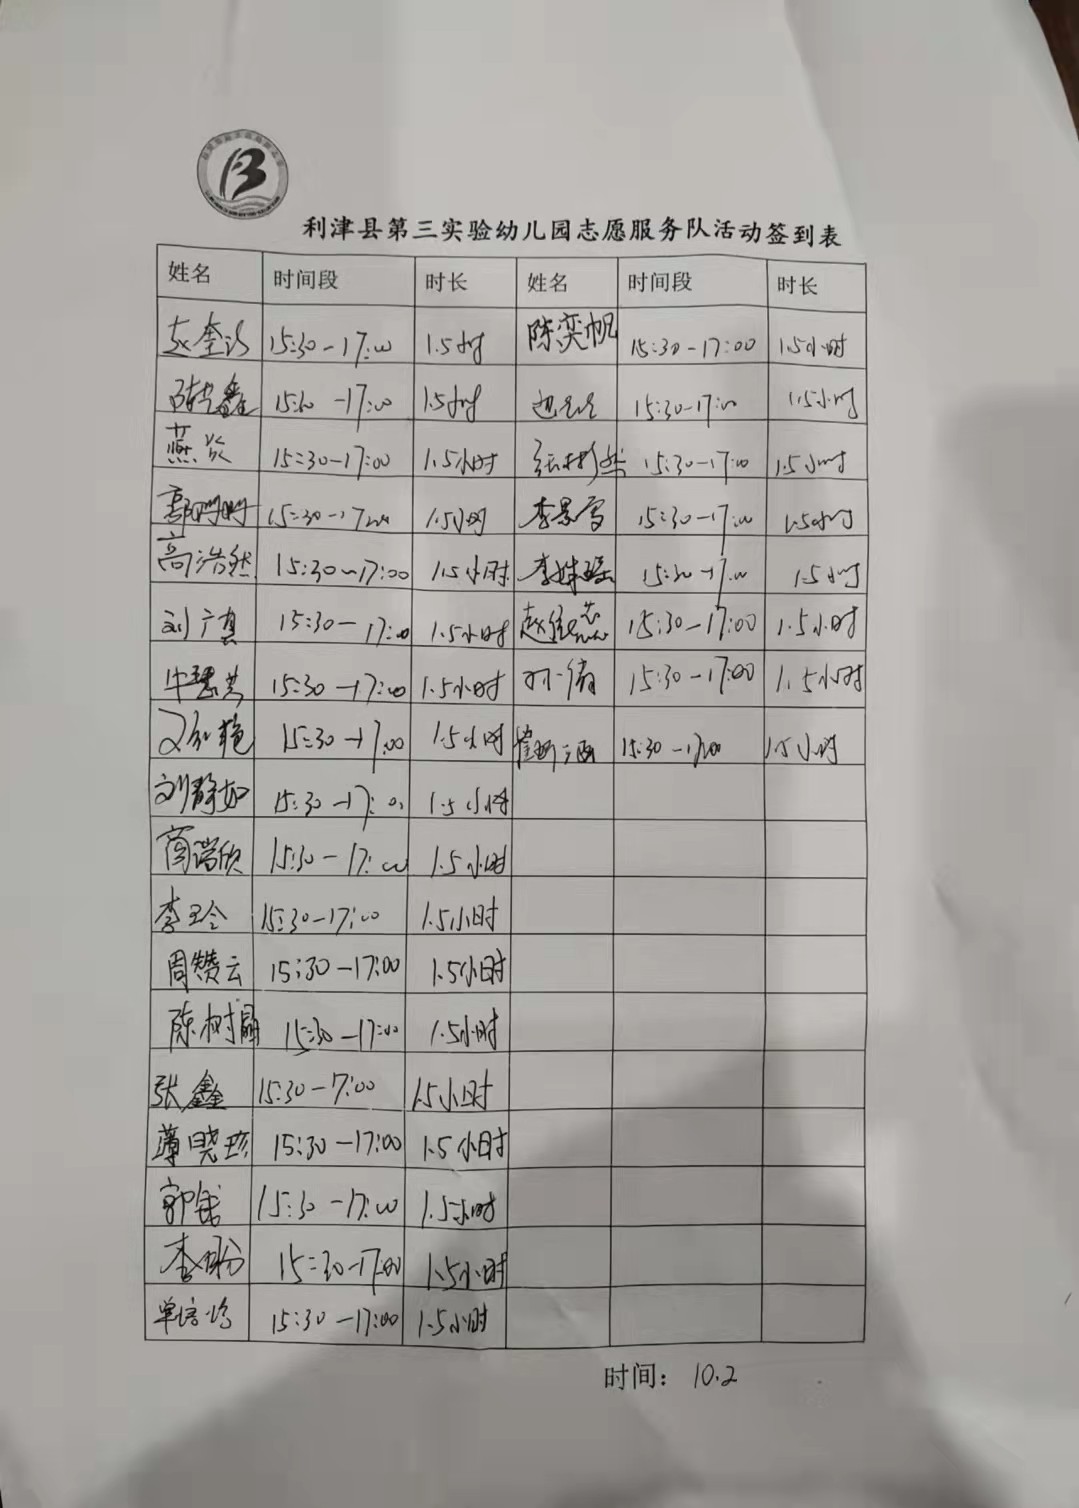 利津县第三实验幼儿园志愿服务队活动签到表
姓名 时间段 时长 姓名 时间段 时长
赵奎 15:30-17:00 1.5小时 陈奕帆 15:30-17:00 1.5小时
鑫 15:30-17:00 1.5小时 15:30-17:00 1.5小时
燕 15:30-17:00 1.5小时 张 15:30-17:00 1.5小时
郭 15:30-17:00 1.5小时 李景雪 15:30-17:00 1.5小时
高浩然 15:30-17:00 1.5小时 李 15:30-17:00 1.5小时
刘广慧 15:30-17:00 1.5小时 赵 15:30-17:00 1.5小时
牛慧芸 15:30-17:00 1.5小时 倩 15:30-17:00 1.5小时
艳 15:30-17:00 1.5小时 崔 15:30-17:00 1.5小时
刘静如 15:30-17:00 1.5小时
商瑞欣 15:30-17:00 1.5小时
李玉玲 15:30-17:00 1.5小时
周赞云 15:30-17:00 1.5小时
陈树 15:30-17:00 1.5小时
张鑫 15:30-7:00 1.5小时
薄晓 15:30-17:00 1.5小时
郭 15:30-17:00 1.5小时
李 15:30-17:00 1.5小时
单 15:30-17:00 1.5小时
时间：10.2